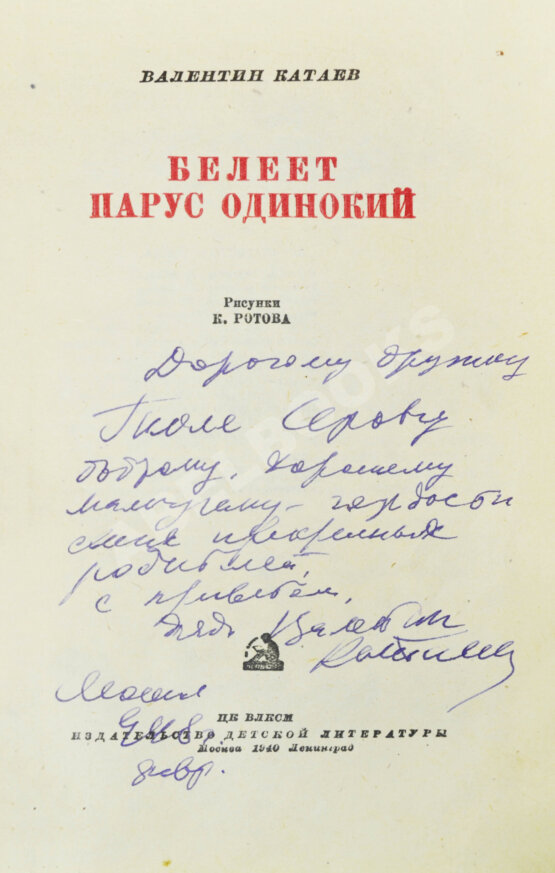 ВАЛЕНТИН КАТАЕВ
БЕЛЕЕТ
ПАРУС ОДИНОКИЙ
Рисунки
К. РОТОВА
Дорогому дружку
Серову
доброму, хорошему
мальчугану – гордости
своих прекрасных
родителей,
с приветом,
дядя Валентин
Катаев
Москва
ЦК ВЛКСМ
ИЗДАТЕЛЬСТВО ДЕТСКОЙ ЛИТЕРАТУРЫ
Москва 1940 Ленинград
янвр.